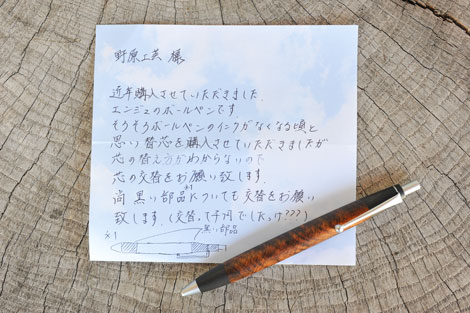 野原工芸 様
近年購入させていただきました
エンジュのボールペンです。
そろそろボールペンのインクがなくなる頃と
思い替芯を購入させていただきましたが
芯の替え方がわからないので
芯の交替をお願い致します。
尚 黒い部品※1についても交替をお願い
致します。(交替って可でしたっけ???)
※1 黒い部品